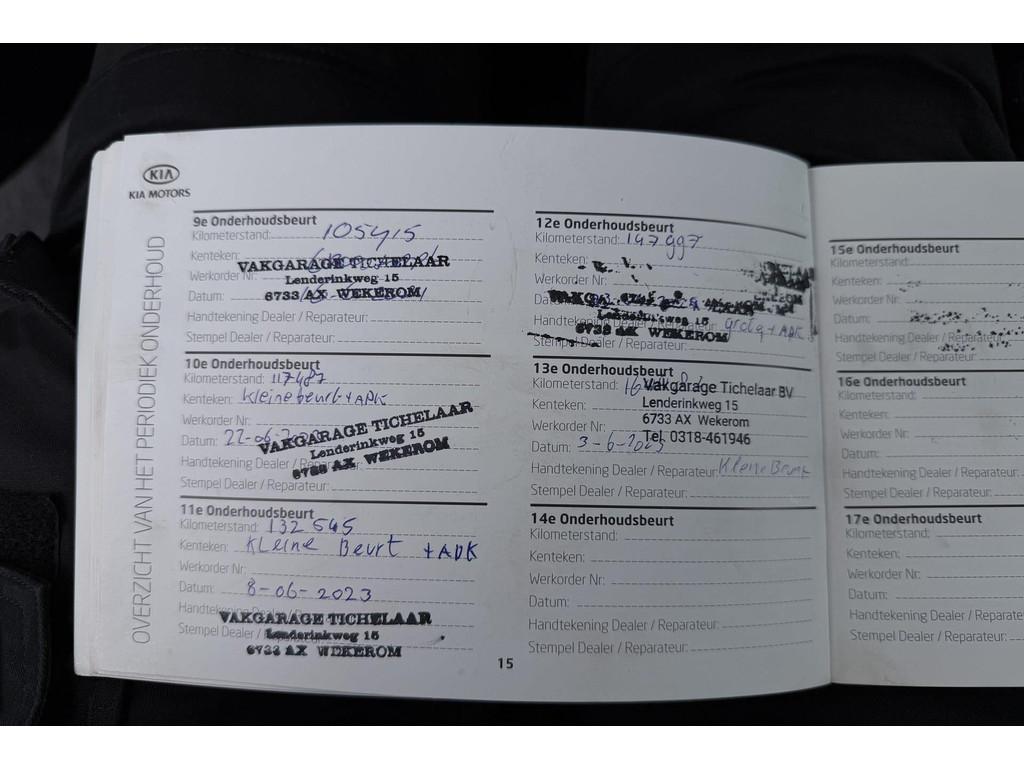 KIA
KIA MOTORS
OVERZICHT VAN HET PERIODIEK ONDERHOUD
9e Onderhoudsbeurt
Kilometerstand: 105415
Kenteken:
VAKGARAGE TICHELAAR
Werkorder Nr:
Lenderinkweg 15
Datum:
6733 AX WEKEROM
Handtekening Dealer / Reparateur:
Stempel Dealer / Reparateur:
10e Onderhoudsbeurt
Kilometerstand: 117487
Kenteken: kleine beurt + APK
Werkorder Nr:
VAKGARAGE TICHELAAR
Datum: 22-06-
Lenderinkweg 15
Handtekening Dealer / Reparateur:
6733 AX WEKEROM
Stempel Dealer / Reparateur:
11e Onderhoudsbeurt
Kilometerstand: 132545
Kenteken: KLeine Beurt + APK
Werkorder Nr:
Datum: 8-06-2023
Handtekening Dealer /
VAKGARAGE TICHELAAR
Stempel Dealer /
Lenderinkweg 15
6733 AX WEKEROM
12e Onderhoudsbeurt
Kilometerstand: 147997
Kenteken:
Werkorder Nr:
Handtekening Dealer / Reparateur: grote + APK
Lenderinkweg 15
6733 AX WEKEROM
Stempel Dealer / Reparateur:
13e Onderhoudsbeurt
Kilometerstand:
Vakgarage Tichelaar BV
Kenteken:
Lenderinkweg 15
Werkorder Nr:
6733 AX Wekerom
Datum: 3-6-2025
Tel. 0318-461946
Handtekening Dealer / Reparateur: Kleine Beurt
Stempel Dealer / Reparateur:
14e Onderhoudsbeurt
Kilometerstand:
Kenteken:
Werkorder Nr:
Datum:
Handtekening Dealer / Reparateur:
Stempel Dealer / Reparateur:
15
15e Onderhoudsbeurt
Kilometerstand:
Kenteken:
Werkorder Nr:
Datum:
Handtekening Dealer / Reparateur:
Stempel Dealer / Reparateur:
16e Onderhoudsbeurt
Kilometerstand:
Kenteken:
Werkorder Nr:
Datum:
Handtekening Dealer / Reparateur:
Stempel Dealer / Reparateur:
17e Onderhoudsbeurt
Kilometerstand:
Kenteken:
Werkorder Nr:
Datum:
Handtekening Dealer / Reparate
Stempel Dealer / Reparateur: